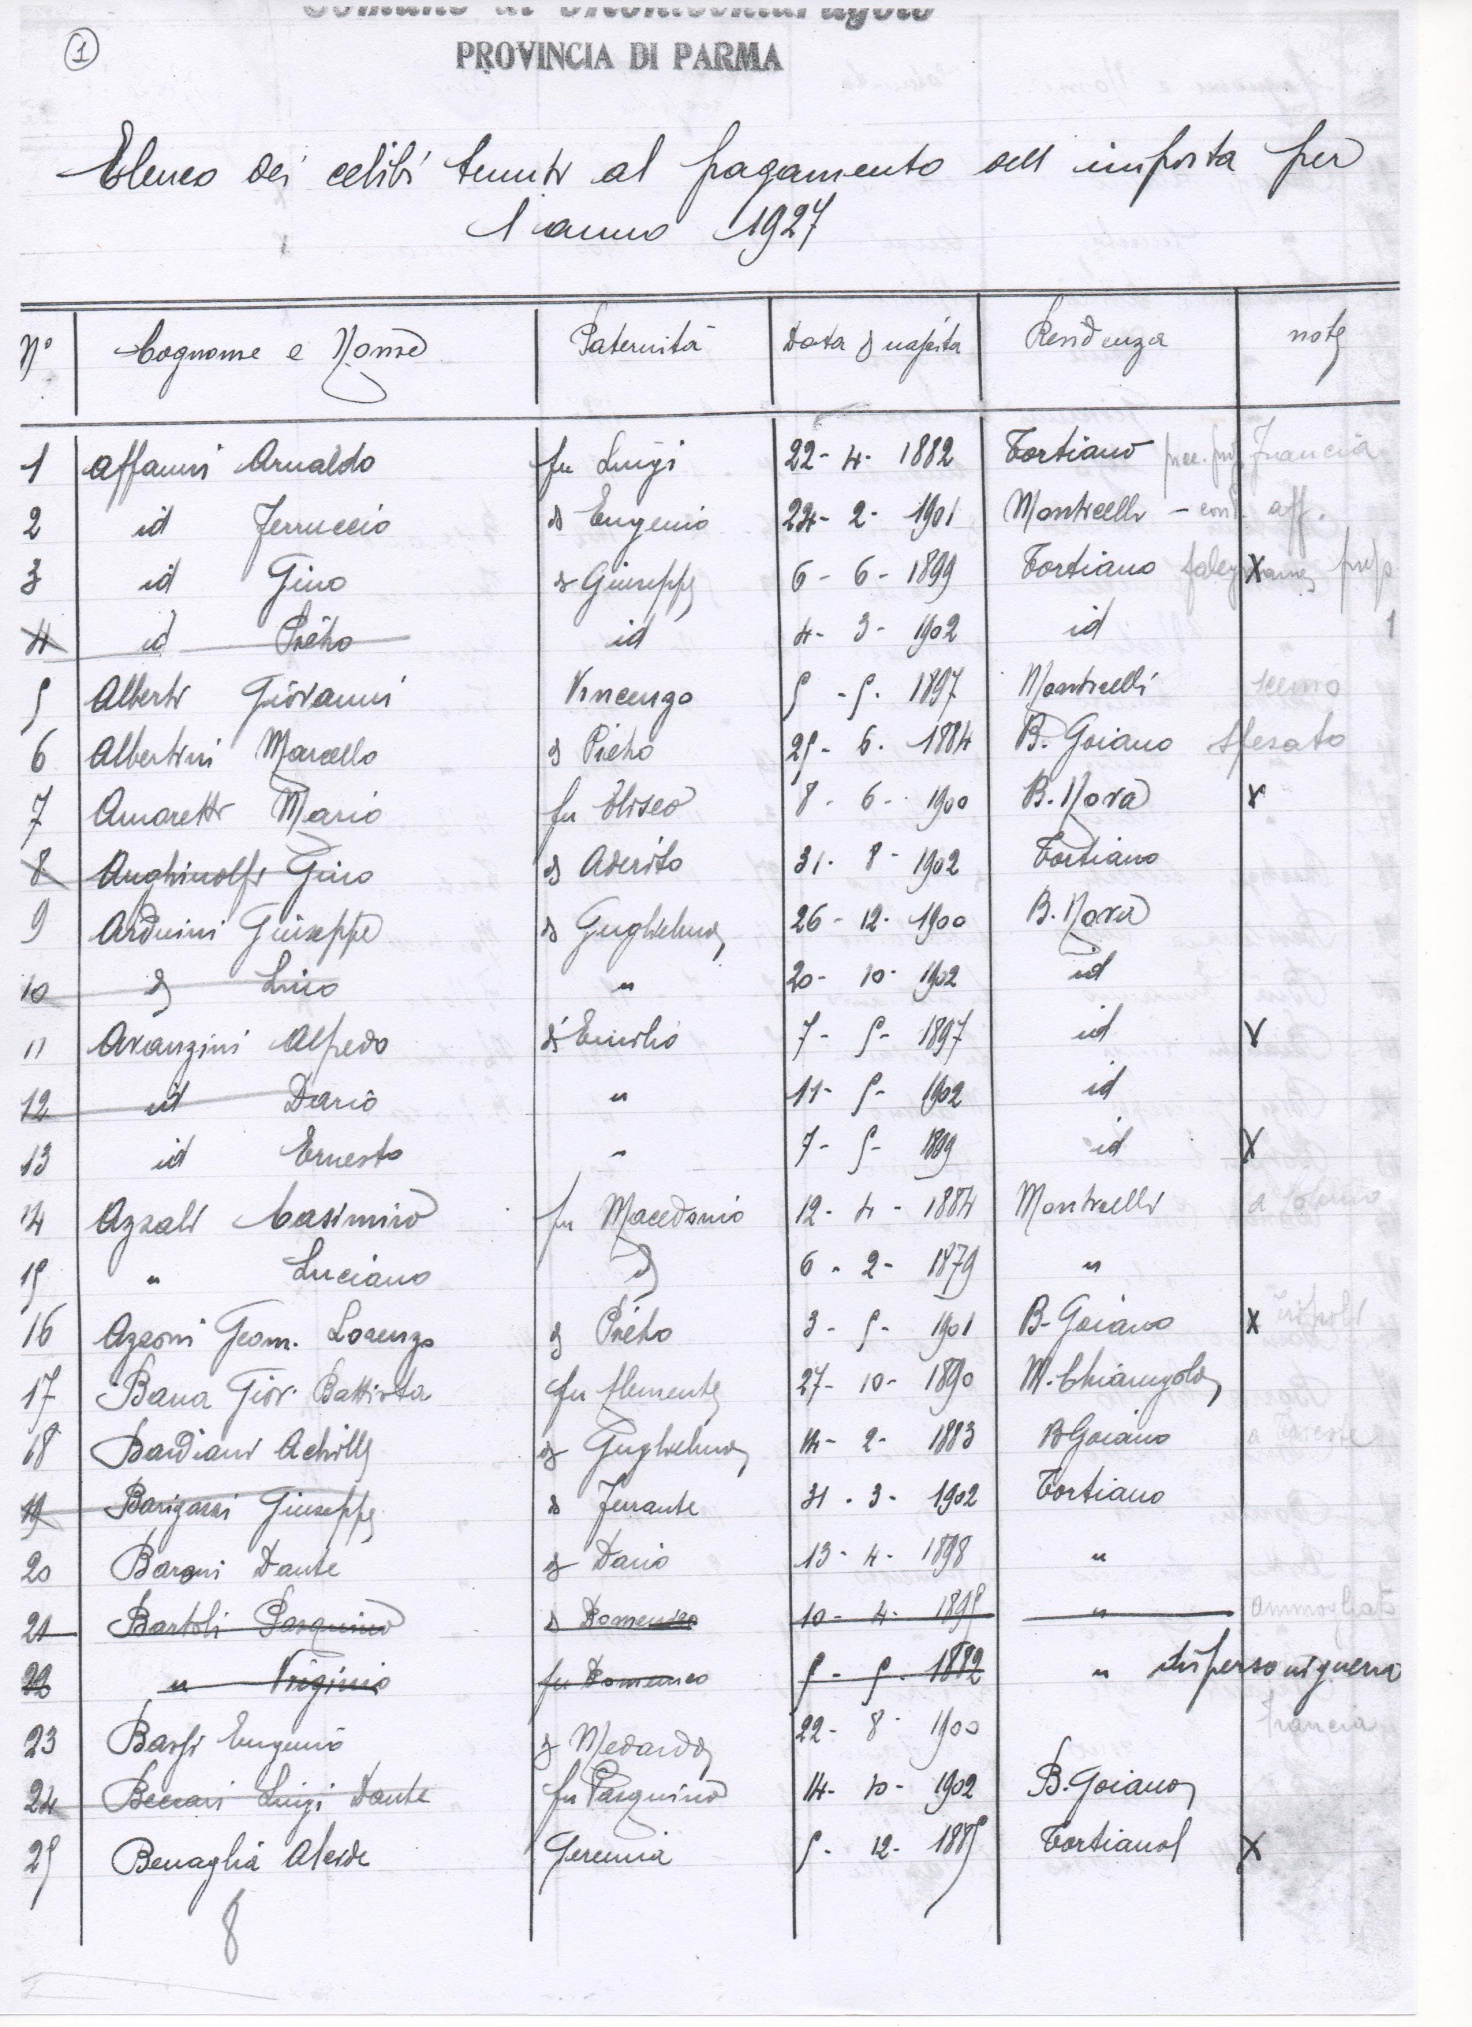 1
PROVINCIA DI PARMA
Elenco dei celibi tenuti al pagamento dell imposta per
l anno 1927
N° Cognome e Nome Paternità Data di nascita Residenza note
1 Affanni Arnaldo fu Luigi 22 - 4 - 1882 Tortiano Francia
2 id Ferruccio di Eugenio 24 - 2 - 1901 Monticelli - aff.
3 id Gino di Giuseppe 6 - 6 - 1899 Tortiano X
4 id Pietro id 4 - 3 - 1902 id 1
5 Alberti Giovanni Vincenzo 5 - 5 - 1897 Monticelli
6 Albertini Marcello di Pietro 25 - 6 - 1884 B. Goiano
7 Amoretti Mario fu Eliseo 8 - 6 - 1900 B. Nova X
8 Anghinolfi Gino di Aderito 31 - 8 - 1902 Tortiano
9 Arduini Giuseppe di Guglielmo 26 - 12 - 1900 B. Nova
10 id Lino " 20 - 10 - 1902 id
11 Avanzini Alfredo di Emilio 7 - 5 - 1897 id X
12 id Dario " 11 - 5 - 1902 id
13 id Ernesto " 7 - 5 - 1899 id X
14 Azzali Casimiro fu Macedonio 12 - 4 - 1884 Monticelli
15 " Luciano id 6 - 2 - 1879 "
16 Azzoni Geom. Lorenzo di Pietro 3 - 5 - 1901 B. Goiano X
17 Bana Giov. Battista fu Clemente 27 - 10 - 1890 M. Chiarugolo
18 Bardiani Achille di Guglielmo 14 - 2 - 1883 B Goiano
19 Barigazzi Giuseppe di Ferrante 31 - 3 - 1902 Tortiano
20 Baroni Dante di Dario 13 - 4 - 1898 "
21 Bartoli Pasquino di Domenico 10 - 4 - 1895 " ammogliato
22 " Virginio fu Domenico 5 - 5 - 1882 " disperso in guerra
23 Bassi Eugenio di Medardo 22 - 8 - 1900 Francia
24 Beccari Luigi Dante fu Pasquino 14 - 10 - 1902 B. Goiano
25 Benaglia Alcide Geremia 5 - 12 - 1885 Tortiano X
8